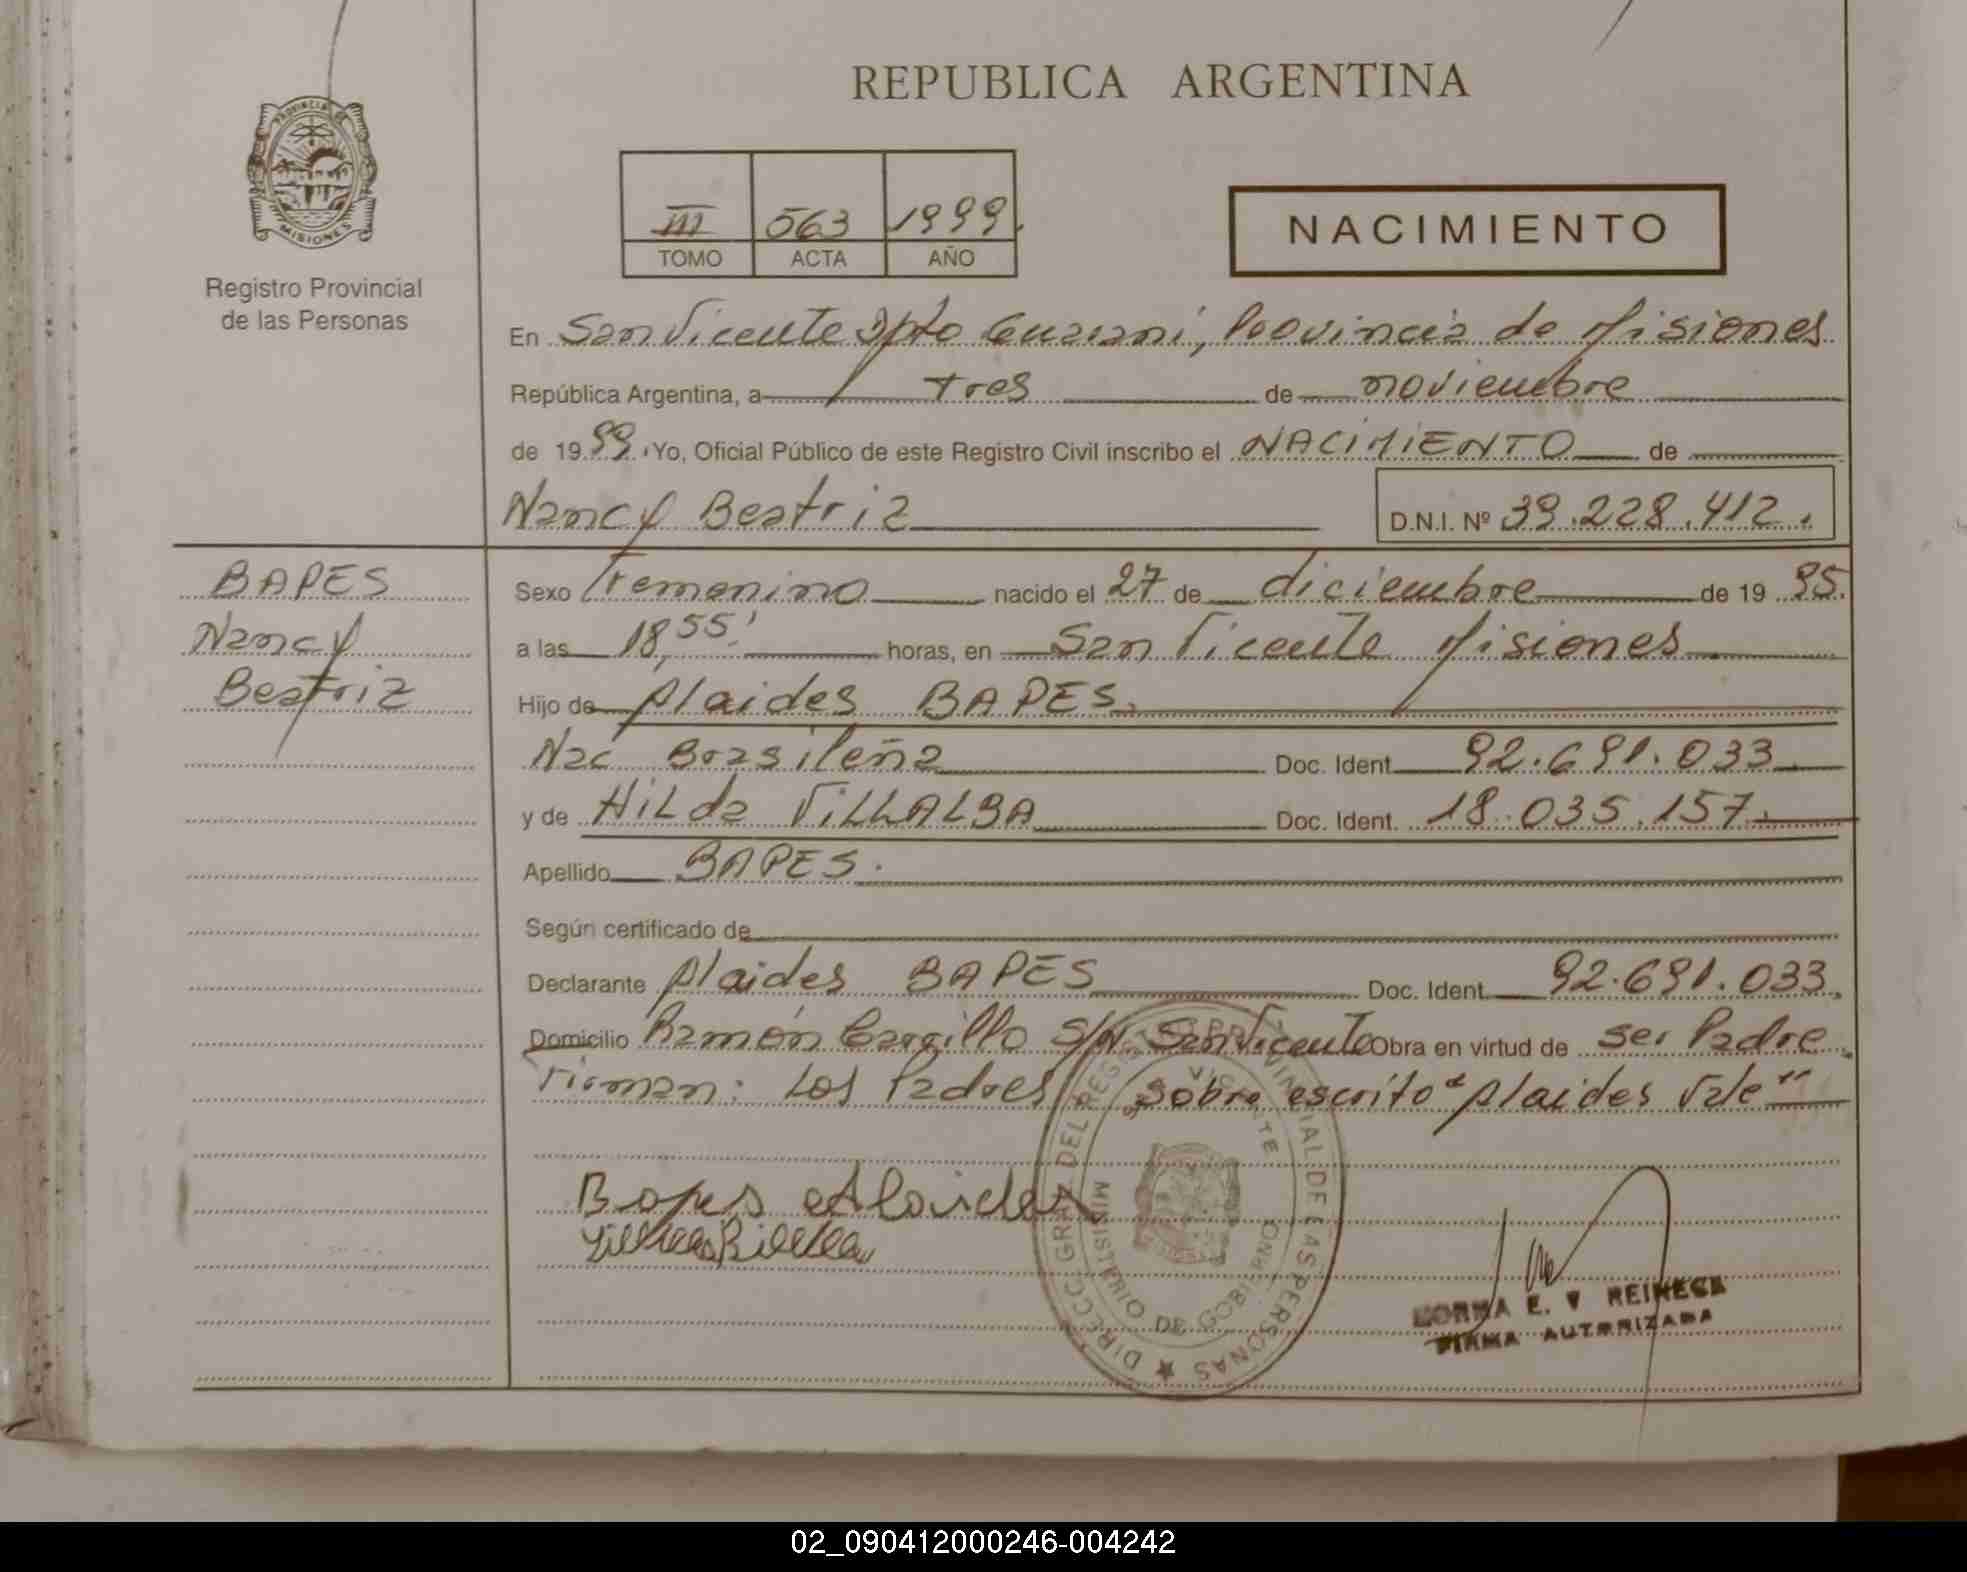 REPUBLICA ARGENTINA
PROVINCIA DE
MISIONES
Registro Provincial
de las Personas
III 563 1999.
TOMO ACTA AÑO
NACIMIENTO
En San Vicente Dpto Guarani, Provincia de Misiones
República Argentina, a tres de noviembre
de 1999. Yo, Oficial Público de este Registro Civil inscribo el NACIMIENTO de
Nancy Beatriz D.N.I. Nº 39.228.412.
BAPES
Nancy
Beatriz
Sexo Femenino nacido el 27 de diciembre de 1995.
a las 18,55' horas, en San Vicente Misiones
Hijo de Alaides BAPES.
Nac Brasileña Doc. Ident. 92.691.033.
y de HiLda ViLLALBA Doc. Ident. 18.035.157.
Apellido BAPES.
Según certificado de
Declarante Alaides BAPES Doc. Ident. 92.691.033.
Domicilio Ramón Carrillo S/N San Vicente Obra en virtud de ser Padre.
Firman: Los Padres sobre escrito "Alaides Vale"
Bapes Alaides
DIRECC. GRAL. DEL REGISTRO PROVINCIAL DE LAS PERSONAS
SAN VICENTE
MINISTERIO DE GOBIERNO
NORMA E. V REINECK
FIRMA AUTORIZADA
02_090412000246-004242